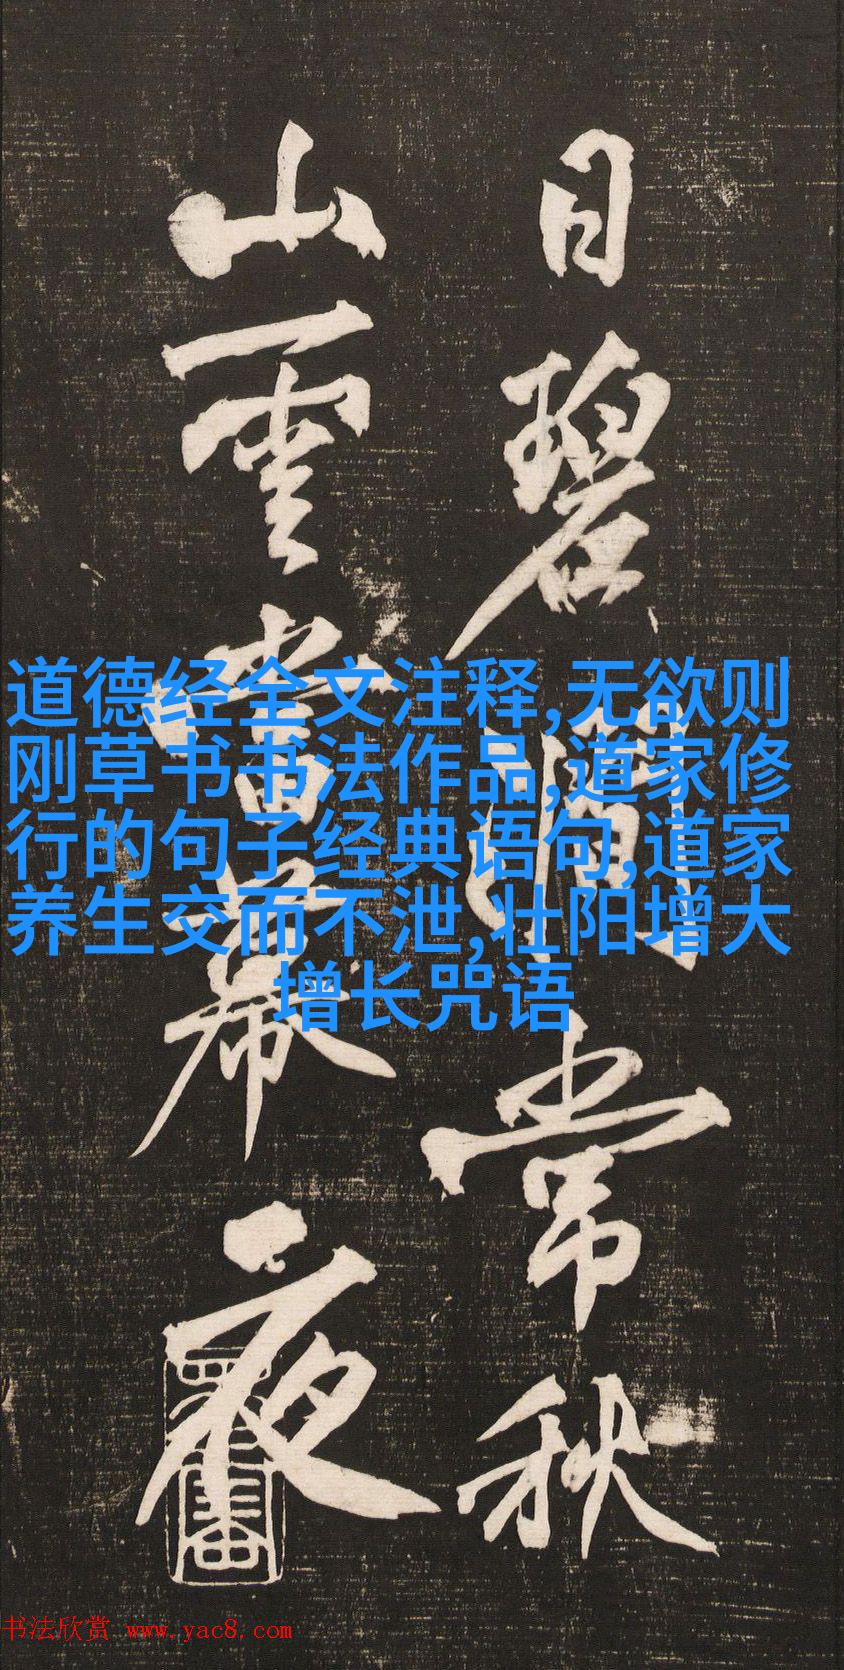 日碧澗常秋
山雲當幕夜
道德经全文注释,无欲则
刚草书书法作品,道家修
行的句子经典语句,道家
养生交而不泄,壮阳增大
增长咒语
书法欣赏 www.yac8.com